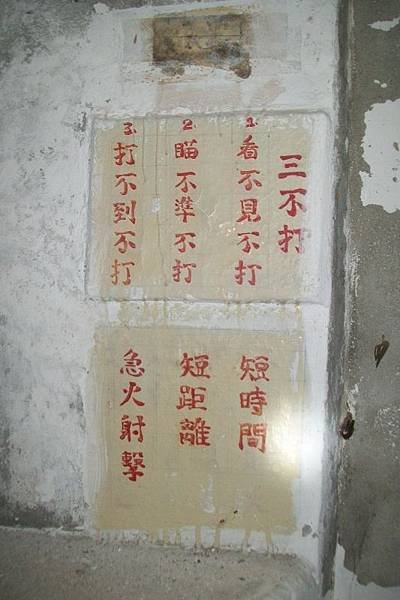 三不打
1.看不見不打
2.瞄不準不打
3.打不到不打
短時間
短距離
急火射擊